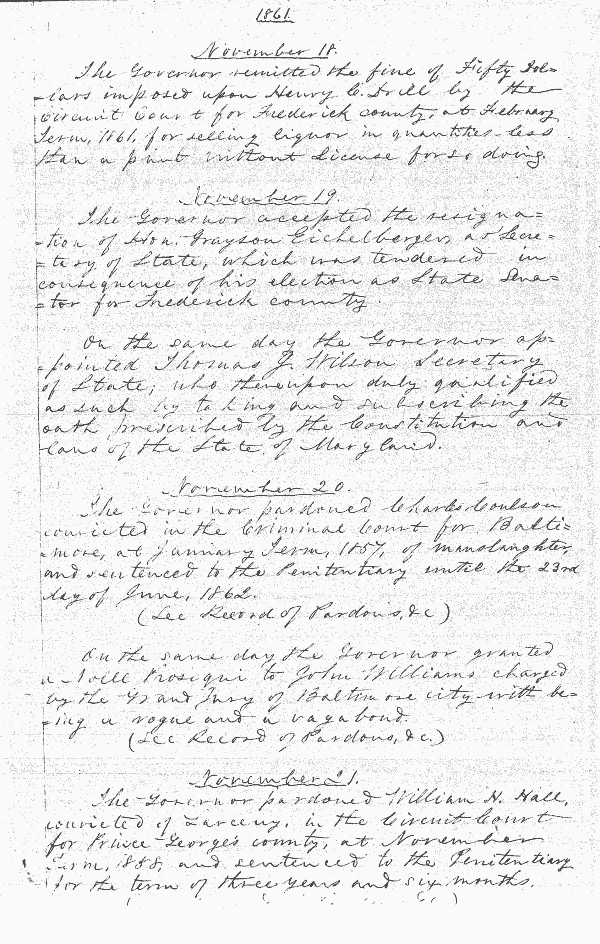 1861.
November 18.
The Governor remitted the fine of Fifty Dol=
=lars imposed upon Henry C. Drill by the
Circuit Court for Frederick county, at February
Term, 1861, for selling liquor in quantities less
than a pint without License for so doing.
November 19.
The Governor accepted the resigna=
=tion of Hon. Grayson Eichelberger, as Secre=
=tary of State, which was tendered in
consequence of his election as State Sena=
=tor for Frederick county.
On the same day the Governor ap=
=pointed Thomas J. Wilson Secretary
of State; who thereupon duly qualified
as such by taking and subscribing the
oath prescribed by the Constitution and
laws of the State of Maryland.
November 20.
The Governor pardoned Charles Coulson
convicted in the Criminal Court for Balti=
=more, at January Term, 1857, of manslaughter,
and sentenced to the Penitentiary until the 23rd
day of June, 1862.
(See Record of Pardons, &c)
On the same day the Governor granted
a Nolle Prosequi to John Williams charged
by the Grand Jury of Baltimore city with be=
=ing a rogue and a vagabond.
(See Record of Pardons, &c.)
November 21.
The Governor pardoned William H. Hall,
convicted of Larceny, in the Circuit Court
for Prince George's county, at November
Term, 1858, and sentenced to the Penitentiary
for the term of three years and six months.